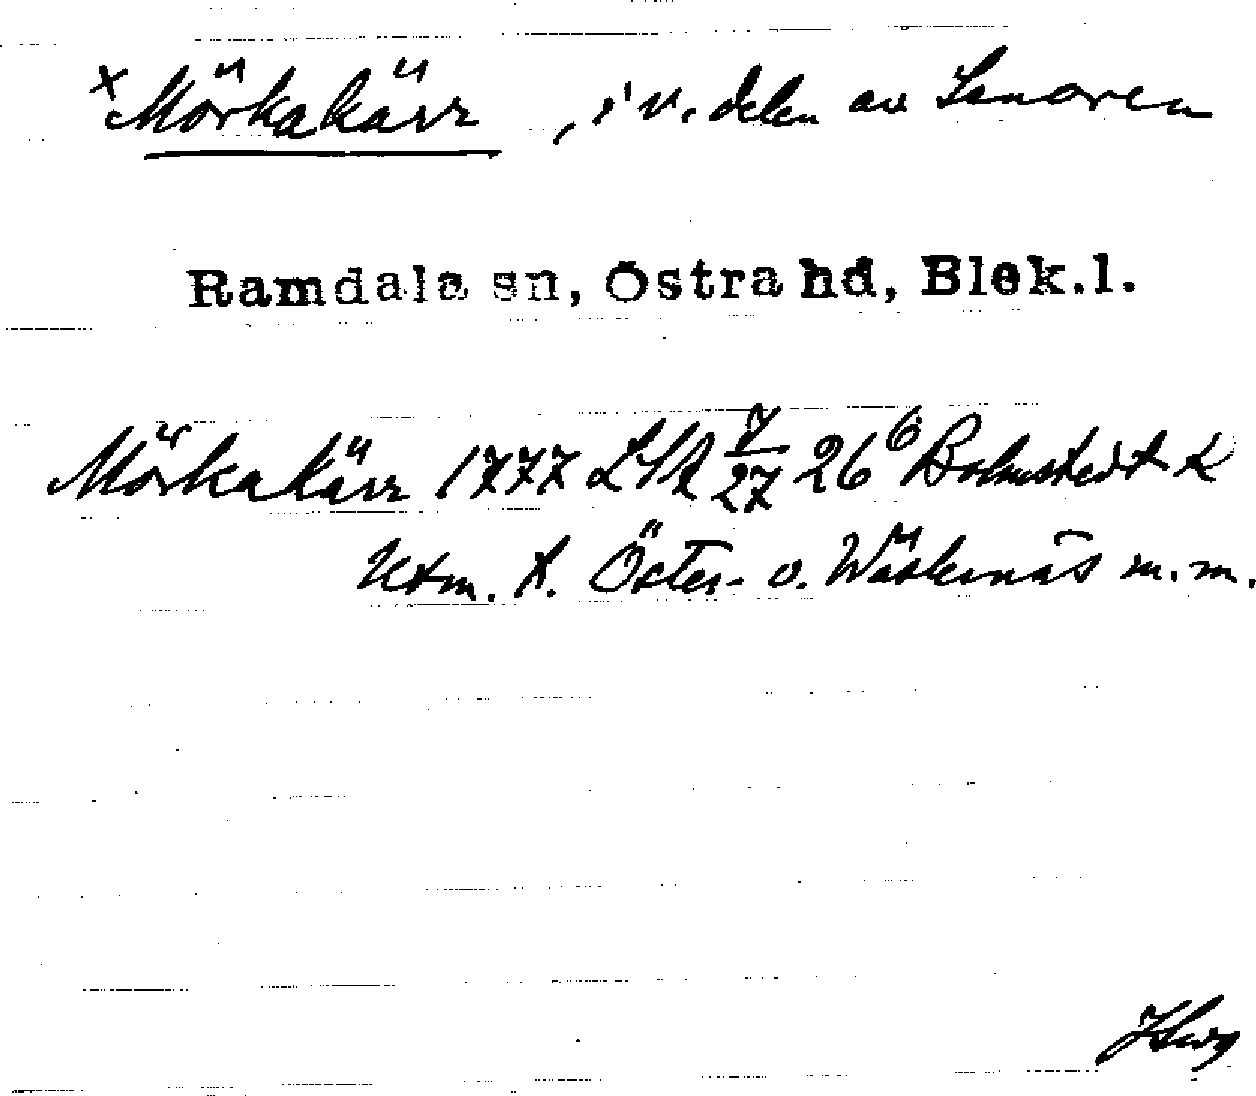 x Mörkakärr, i v. delen av Senoren
Ramdala sn, Östra hd, Blek.l.
Mörkakärr 1777 LSA 7/27 26⁶ Bohmstedt K
Utm. t. Öster- o. Wästernäs m.m.